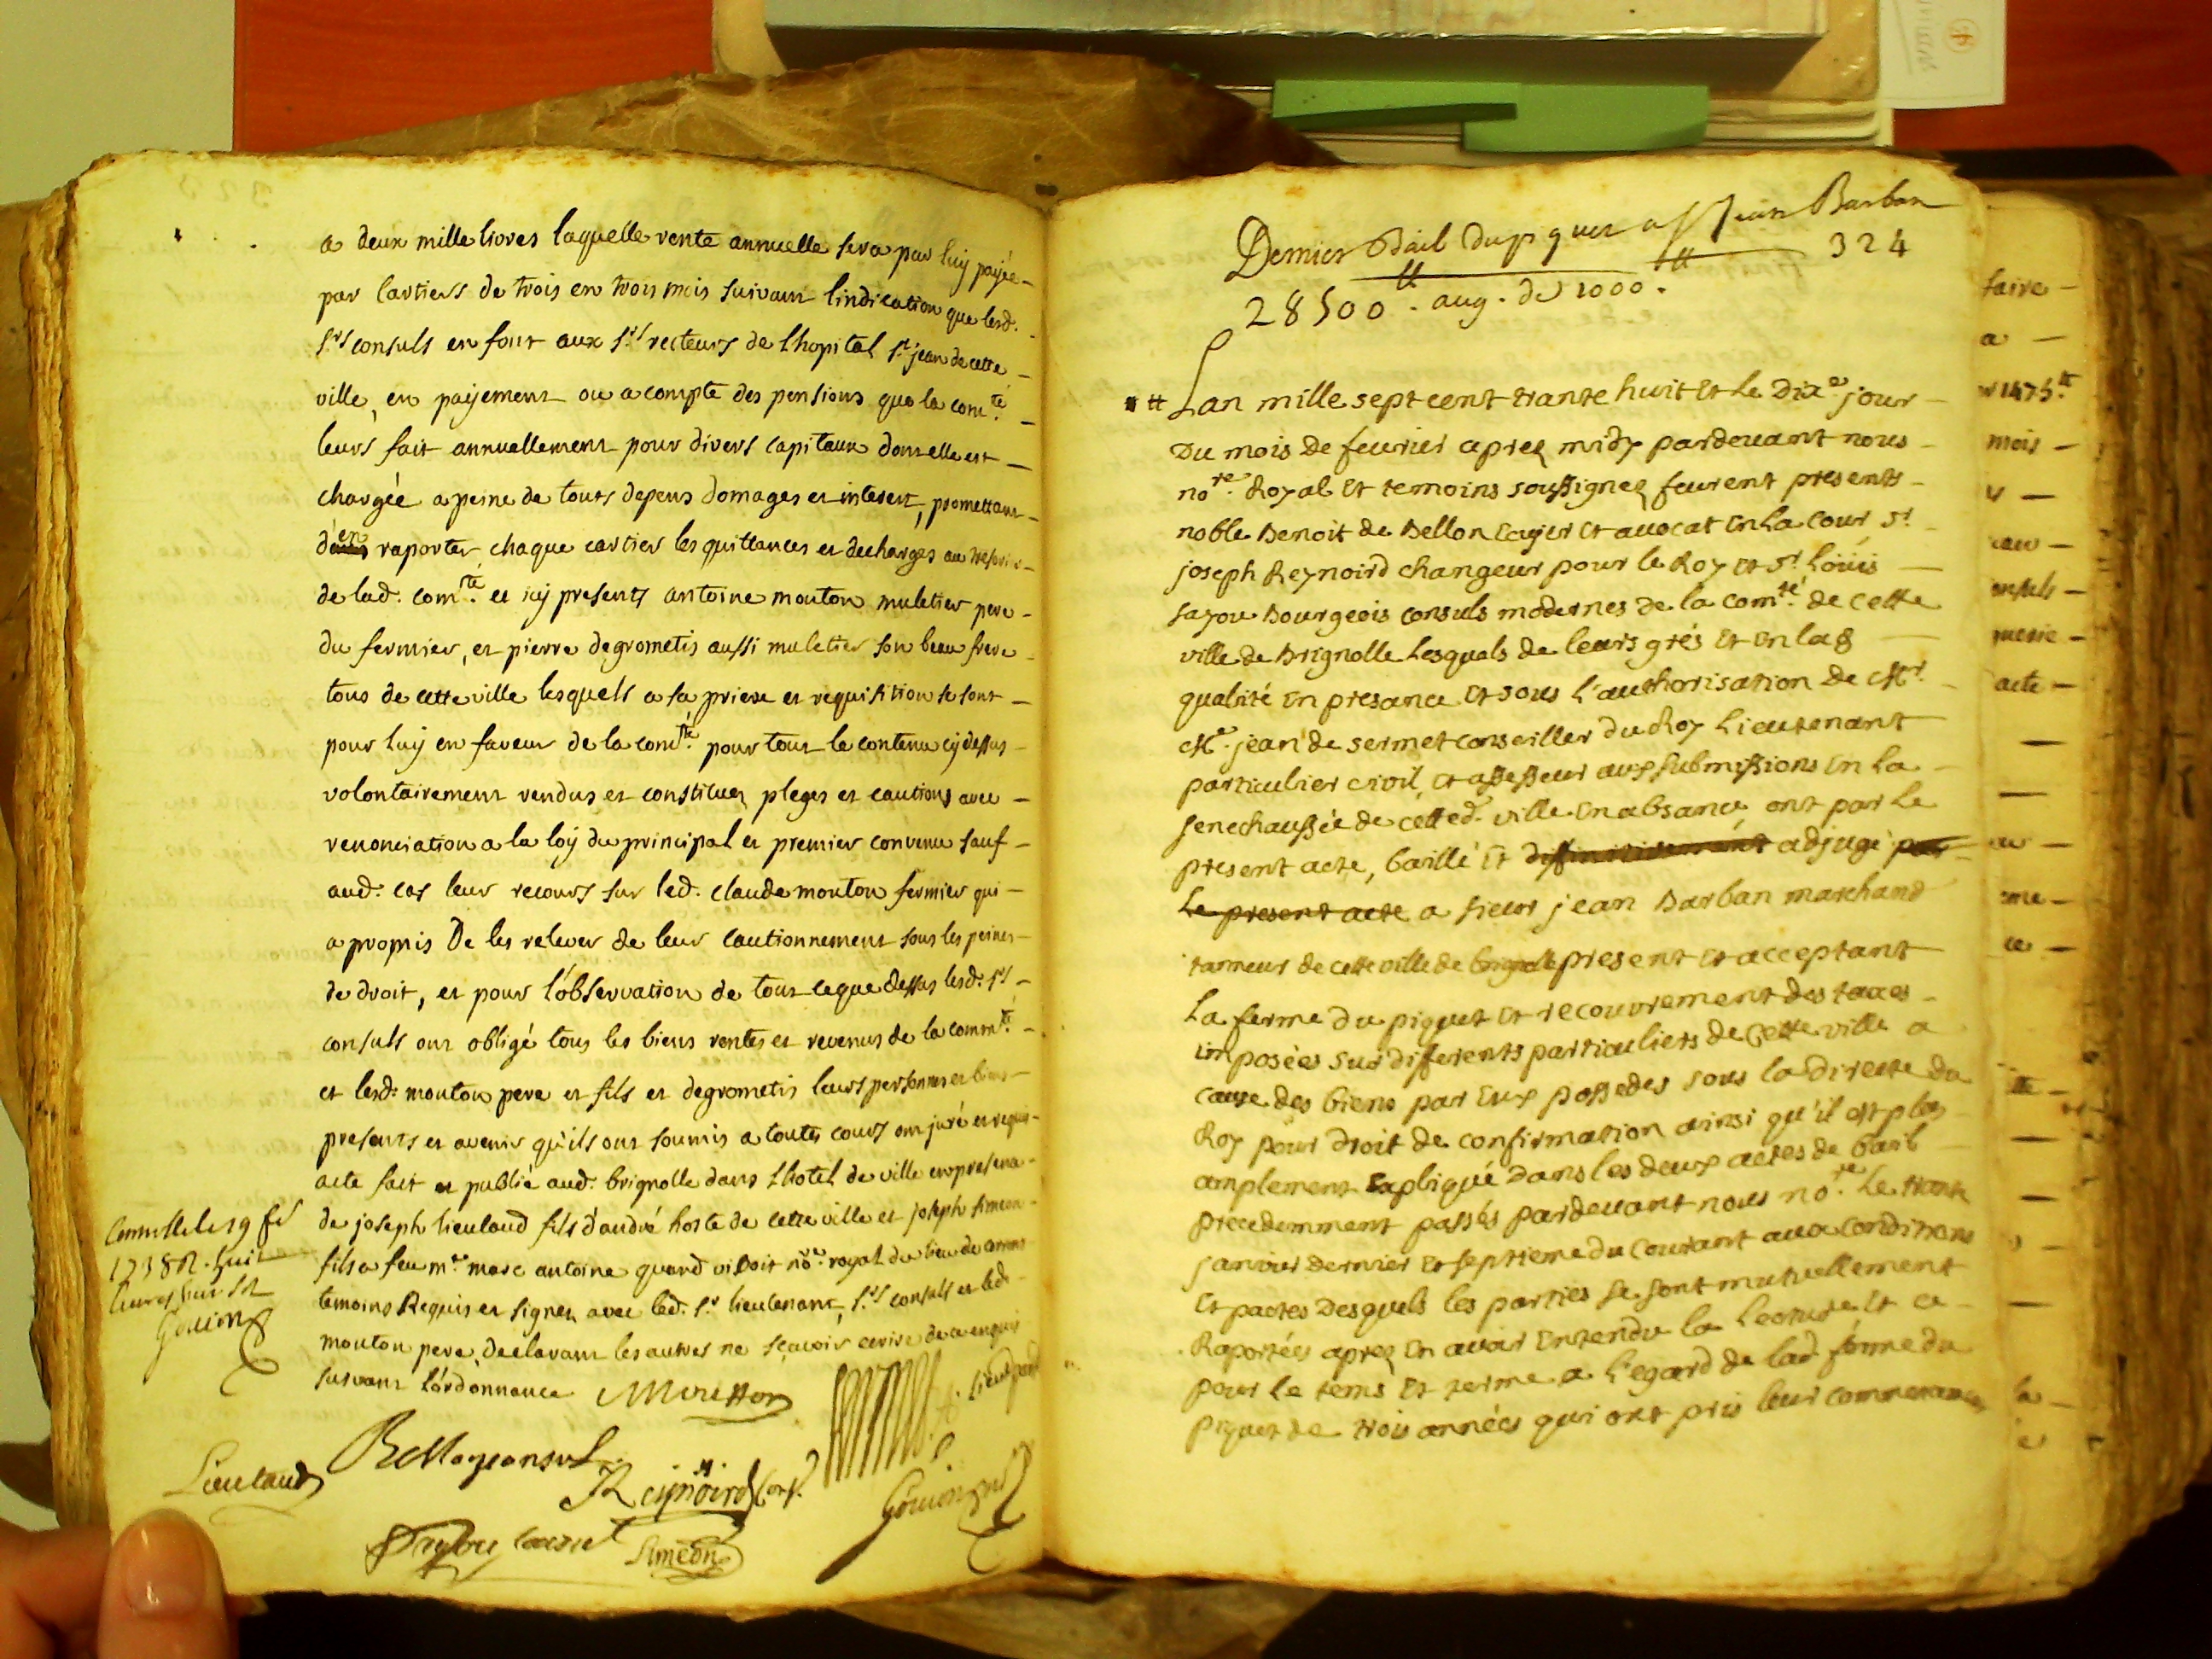 a deux mille livres laquelle rente annuelle sera par luy payée
par cartiers de trois en trois mois suivant lindication que lesd.
srs consuls en font aux srs recteurs de lhopital st jean de cette
ville, en payement ou a compte des pensions que la comté.
leurs fait annuellement pour divers capitaux dont elle est
chargée a peine de touts depens domages et interest, promettant
d'en raporter chaque cartier les quittances et decharges au
de lad. comté. et icy presents antoine mouton muletier pere
du fermier, et pierre degrometis aussi muletier son beau frere
tous de cette ville lesquels a sa priere et requisition se sont
pour luy en faveur de la comté. pour tout le contenu cy dessus
volontairement rendus et constitues pleges et cautions avec
renonciation a la loy du principal et premier convenu sauf
aud. cas leur recours sur led. claude mouton fermier qui
a promis De les relever de leur cautionnement sous les peines
de droit, et pour lóbservation de tout ceque dessus lesd. srs
consuls ont obligé tous les biens rentes et revenus de la commté.
et lesd. mouton pere et fils et degrometis leurs personnes et biens
presents et avenir qu'ils ont soumis a toutes cours ont juré et requis
acte fait et publié aud. brignolle dans lhotel de ville en presence
de joseph lieutaud fils d'andré hoste de cette ville et joseph simeon
fils a feu me. marc antoine quand vivoit nore. royal du lieu de
temoins Requis et signez avec led. sr lieutenant, srs consuls et led.
mouton pere, declarant les autres ne sçavoir ecrire de ce enquis
suivant lórdonnance Moutton
le 19 fer
1738 R. huit
livres
Lieutaud
consul
Reynoird Cons.
simeon
Dernier Bail du piquet a sr jean Barban
324
28500tt. aug. de 1000tt.
Lan mille sept cent trante huit et Le Dixe jour
Du mois de feuvrier aprez midy pardevant nous
nore. Royal Et temoins soussignez feurent presents
noble Benoit de Bellon Ecuyer Et avocat En La Cour, sr
joseph Reynoird changeur pour le Roy et sr Loüis
fayou Bourgeois consuls modernes de la comté. de cette
ville de Brignolle Lesquels de leurs grés Et En lad
qualité En presance Et sous l'authorisation de Mr.
Me. jean de sermet conseiller du Roy Lieutenant
particulier civil, Et assesseur aux submissions En La
senechaussée de cetted. ville En absance, ont par Le
present acte, baillé Et diffinitivement adjugé par
Le present acte a sieur jean Barban marchand
tanneur de cette ville de brignolle present et acceptant
La ferme du piquet Et recouvrement des taxes
imposées sur differents particuliers de Cette ville a
cause des biens par Eux possedes sous la directe du
Roy pour droit de confirmation ainsi qu'il est plus
amplement Expliqué Dans les deux actes de bail
precedemment passés pardevant nous nore. Le trante
janvier dernier Et septieme du Courant aux conditions
Et pactes Desquels les parties se sont mutuellement
Raportées aprez En avoir Entendu la Lecture Et ce
pour le tems Et terme a l'egard de lad. ferme du
piquet de trois années qui ont pris leur commencement
faire
a
1475tt
mois
acte